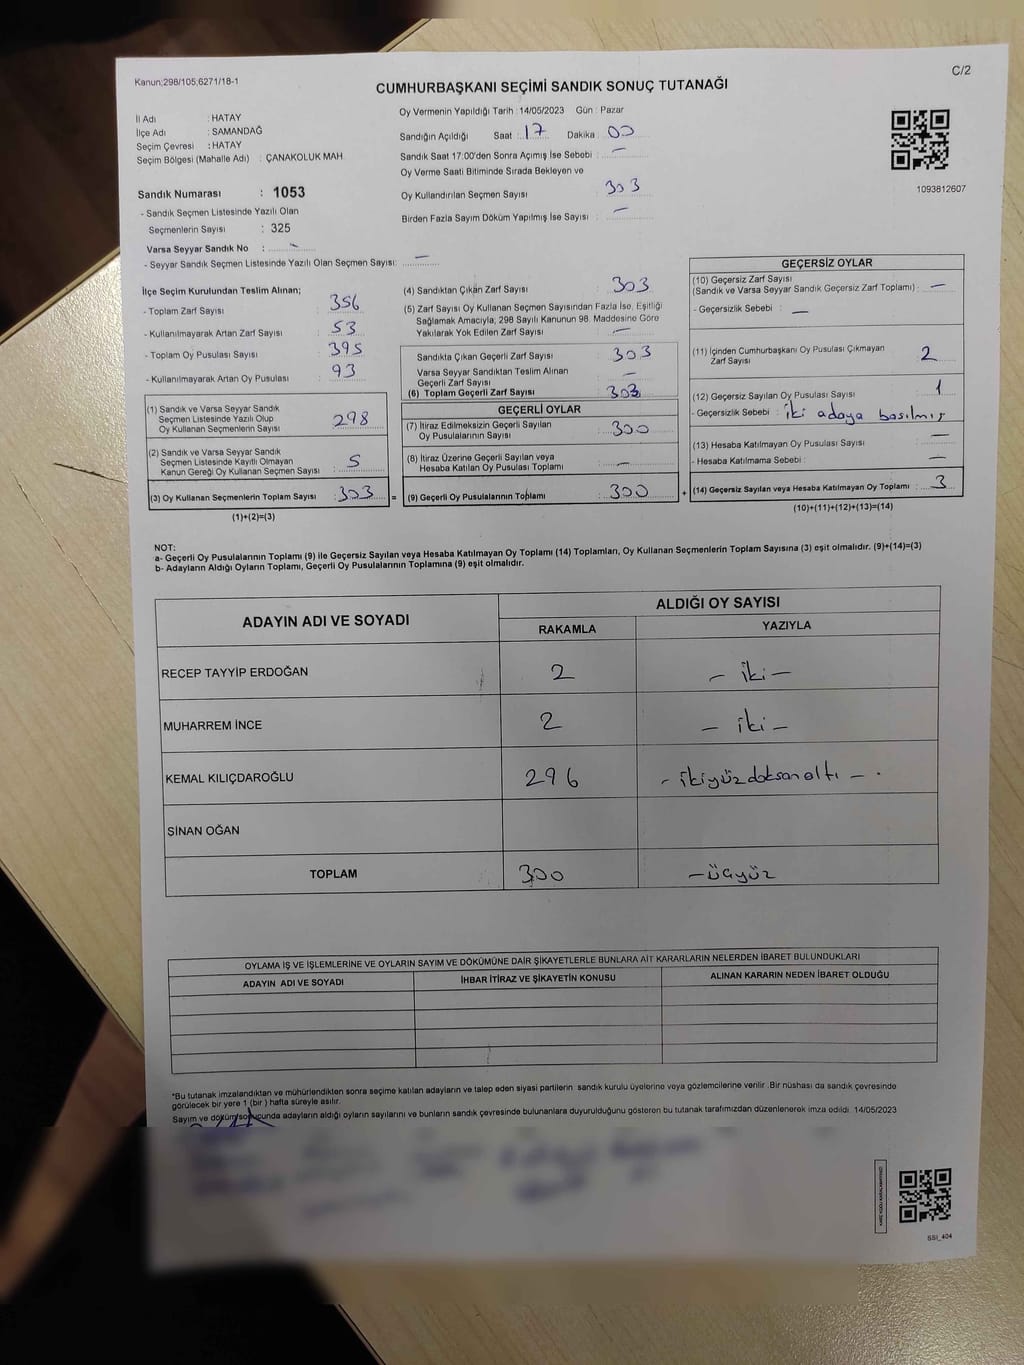 Kanun;298/105;6271/18-1
C/2
CUMHURBAŞKANI SEÇİMİ SANDIK SONUÇ TUTANAĞI
İl Adı : HATAY
İlçe Adı : SAMANDAĞ
Seçim Çevresi : HATAY
Seçim Bölgesi (Mahalle Adı) : ÇANAKOLUK MAH.
Sandık Numarası : 1053
- Sandık Seçmen Listesinde Yazılı Olan
Seçmenlerin Sayısı : 325
Varsa Seyyar Sandık No : -
- Seyyar Sandık Seçmen Listesinde Yazılı Olan Seçmen Sayısı: -
Oy Vermenin Yapıldığı Tarih :14/05/2023 Gün : Pazar
Sandığın Açıldığı Saat : 17 Dakika : 00
Sandık Saat 17:00'den Sonra Açımış İse Sebebi : -
Oy Verme Saati Bitiminde Sırada Bekleyen ve
Oy Kullandırılan Seçmen Sayısı : 303
Birden Fazla Sayım Döküm Yapılmış İse Sayısı : -
1093812607
İlçe Seçim Kurulundan Teslim Alınan;
- Toplam Zarf Sayısı : 356
- Kullanılmayarak Artan Zarf Sayısı : 53
- Toplam Oy Pusulası Sayısı : 395
- Kullanılmayarak Artan Oy Pusulası : 93
(1) Sandık ve Varsa Seyyar Sandık
Seçmen Listesinde Yazılı Olup
Oy Kullanan Seçmenlerin Sayısı : 298
(2) Sandık ve Varsa Seyyar Sandık
Seçmen Listesinde Kayıtlı Olmayan
Kanun Gereği Oy Kullanan Seçmen Sayısı : 5
(3) Oy Kullanan Seçmenlerin Toplam Sayısı : 303 =
(1)+(2)=(3)
(4) Sandıktan Çıkan Zarf Sayısı : 303
(5) Zarf Sayısı Oy Kullanan Seçmen Sayısından Fazla İse, Eşitliği
Sağlamak Amacıyla, 298 Sayılı Kanunun 98. Maddesine Göre
Yakılarak Yok Edilen Zarf Sayısı : -
Sandıkta Çıkan Geçerli Zarf Sayısı : 303
Varsa Seyyar Sandıktan Teslim Alınan
Geçerli Zarf Sayısı : -
(6) Toplam Geçerli Zarf Sayısı : 303
GEÇERLİ OYLAR
(7) İtiraz Edilmeksizin Geçerli Sayılan
Oy Pusulalarının Sayısı : 300
(8) İtiraz Üzerine Geçerli Sayılan veya
Hesaba Katılan Oy Pusulası Toplamı : -
(9) Geçerli Oy Pusulalarının Toplamı : 300 +
GEÇERSİZ OYLAR
(10) Geçersiz Zarf Sayısı
(Sandık ve Varsa Seyyar Sandık Geçersiz Zarf Toplamı) : -
- Geçersizlik Sebebi : -
(11) İçinden Cumhurbaşkanı Oy Pusulası Çıkmayan
Zarf Sayısı : 2
(12) Geçersiz Sayılan Oy Pusulası Sayısı : 1
- Geçersizlik Sebebi : iki adaya basılmış
(13) Hesaba Katılmayan Oy Pusulası Sayısı : -
- Hesaba Katılmama Sebebi : -
(14) Geçersiz Sayılan veya Hesaba Katılmayan Oy Toplamı : 3
(10)+(11)+(12)+(13)=(14)
NOT:
a- Geçerli Oy Pusulalarının Toplamı (9) ile Geçersiz Sayılan veya Hesaba Katılmayan Oy Toplamı (14) Toplamları, Oy Kullanan Seçmenlerin Toplam Sayısına (3) eşit olmalıdır. (9)+(14)=(3)
b- Adayların Aldığı Oyların Toplamı, Geçerli Oy Pusulalarının Toplamına (9) eşit olmalıdır.
ADAYIN ADI VE SOYADI
ALDIĞI OY SAYISI
RAKAMLA YAZIYLA
RECEP TAYYİP ERDOĞAN 2 - iki -
MUHARREM İNCE 2 - iki -
KEMAL KILIÇDAROĞLU 296 - ikiyüzdoksanaltı -
SİNAN OĞAN
TOPLAM 300 - üçyüz
OYLAMA İŞ VE İŞLEMLERİNE VE OYLARIN SAYIM VE DÖKÜMÜNE DAİR ŞİKAYETLERLE BUNLARA AİT KARARLARIN NELERDEN İBARET BULUNDUKLARI
ADAYIN ADI VE SOYADI İHBAR İTİRAZ VE ŞİKAYETİN KONUSU ALINAN KARARIN NEDEN İBARET OLDUĞU
*Bu tutanak imzalandıktan ve mühürlendikten sonra seçime katılan adayların ve talep eden siyasi partilerin sandık kurulu üyelerine veya gözlemcilerine verilir .Bir nüshası da sandık çevresinde
görülecek bir yere 1 (bir ) hafta süreyle asılır.
Sayım ve döküm sonucunda adayların aldığı oyların sayılarını ve bunların sandık çevresinde bulunanlara duyurulduğunu gösteren bu tutanak tarafımızdan düzenlenerek imza edildi. 14/05/2023
SSI_404